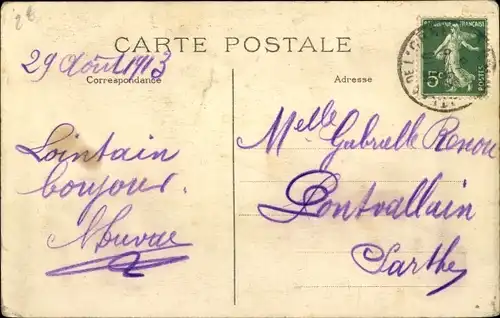 CARTE POSTALE
29 Août 1913
Correspondance
Adresse
Lointain
bonjour.
Melle Gabrielle Renou
Pontvallain
Sarthe
RÉPUBLIQUE FRANÇAISE
5c
POSTES